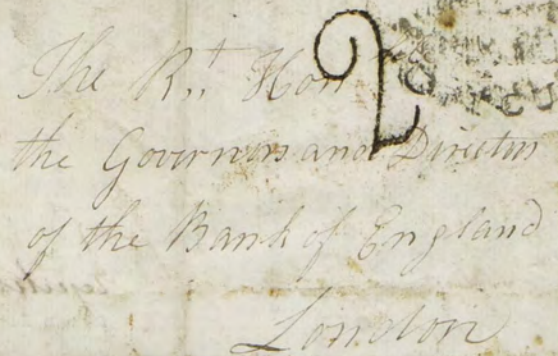 The Rt. Hon 2
the Governors and Directors
of the Bank of England
London